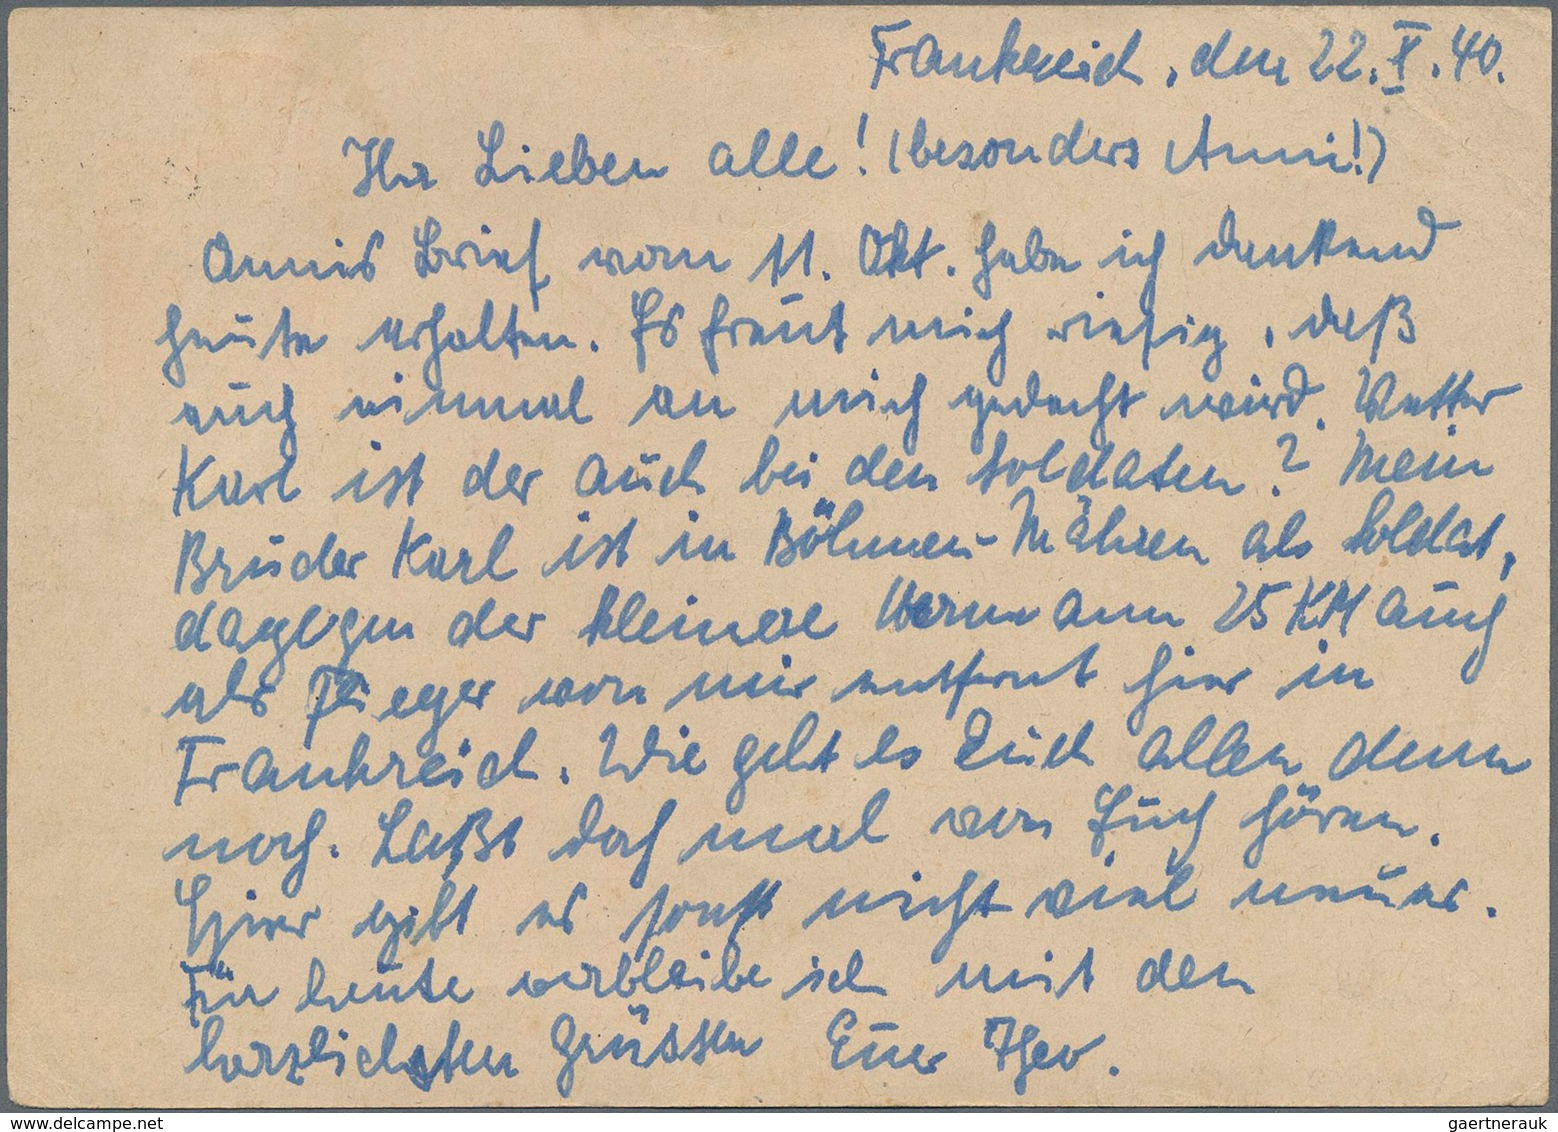 Frankreich, den 22.X.40.
Ihr Lieben alle! (besonders Anni!)
Annis Brief vom 11. Okt. habe ich dankend
heute erhalten. Es freut mich riesig, daß
auch einmal an mich gedacht wird. Vetter
Karl ist der auch bei den Soldaten? Mein
Bruder Karl ist in Böhmen-Mähren als Soldat,
dagegen der kleinere Hermann 25 KM auch
als Flieger von mir entfernt hier in
Frankreich. Wie geht es Euch allen denn
noch. Laßt doch mal von Euch hören.
Hier gibt es sonst nicht viel neues.
Für heute verbleibe ich mit den
herzlichsten Grüssen Euer Theo.
www.delcampe.net
gaertnerauk